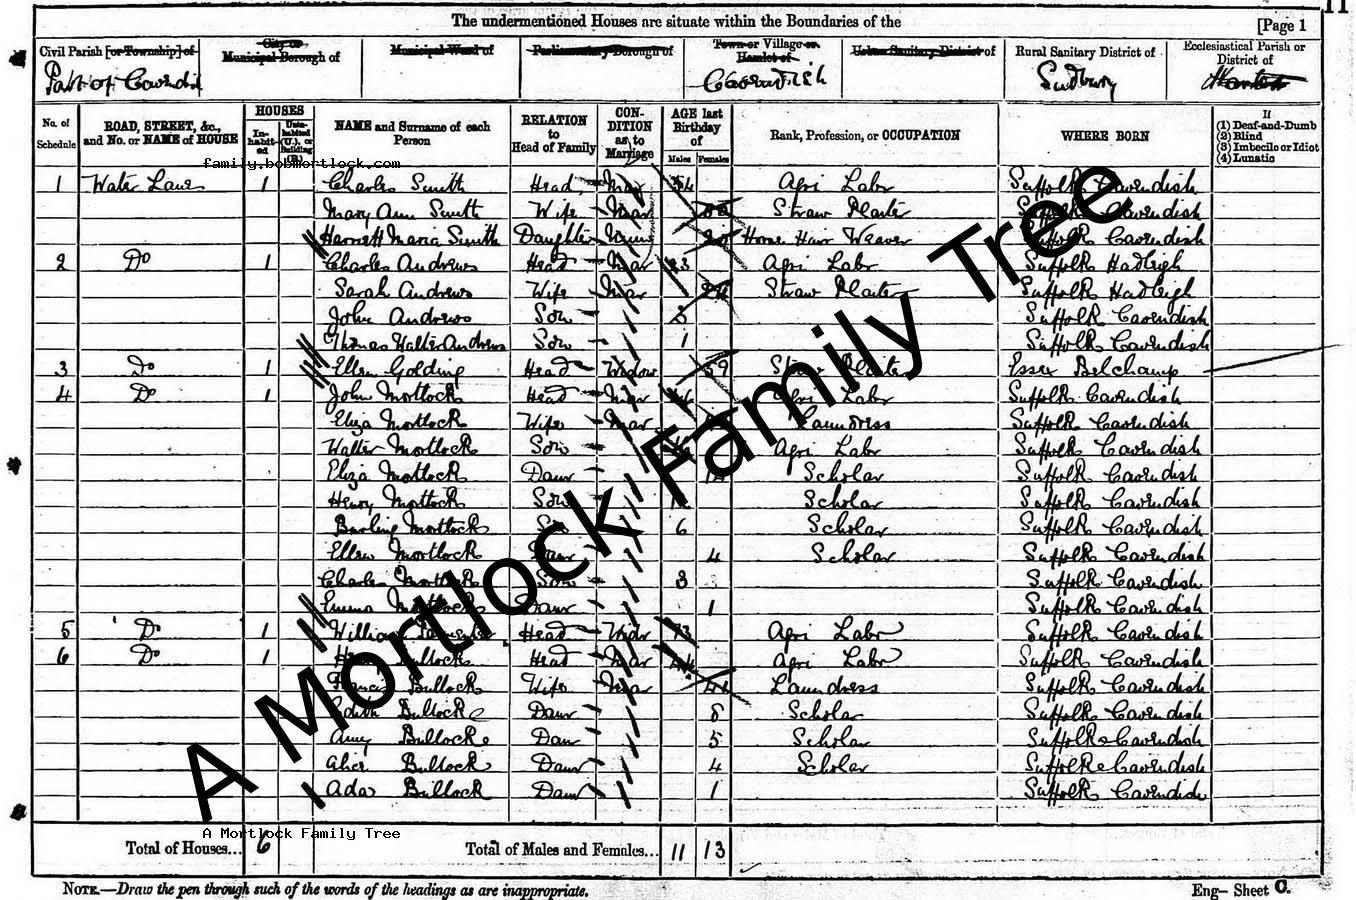 The undermentioned Houses are situate within the Boundaries of the
[Page 1
11
Civil Parish [or Township] of
City or
Municipal Borough of
Municipal Ward of
Parliamentary Borough of
Town or Village or
Hamlet of
Urban Sanitary District of
Rural Sanitary District of
Ecclesiastical Parish or
District of
Part of Cavendish
Cavendish
Sudbury
No. of
Schedule
ROAD, STREET, &c.,
and No. or NAME of HOUSE
HOUSES
In-
habit-
ed
Unin-
habited
(U.), or
Building
(B.)
NAME and Surname of each
Person
RELATION
to
Head of Family
CON-
DITION
as to
Marriage
AGE last
Birthday
of
Males
Females
Rank, Profession, or OCCUPATION
WHERE BORN
If
(1) Deaf-and-Dumb
(2) Blind
(3) Imbecile or Idiot
(4) Lunatic
family.bobmortlock.com
1 Water Lane 1 Charles Smith Head Mar 54 Agri Labr Suffolk Cavendish
Mary Ann Smith Wife Mar Straw Plaiter Suffolk Cavendish
Harriett Maria Smith Daughter Horse Hair Weaver Suffolk Cavendish
2 Do 1 Charles Andrews Head Mar 23 Agri Labr Suffolk Hadleigh
Sarah Andrews Wife Mar 24 Straw Plaiter Suffolk Hadleigh
John Andrews Son 3 Suffolk Cavendish
Thomas Walter Andrews Son 1 Suffolk Cavendish
3 Do 1 Ellen Golding Head Widow 59 Straw Plaiter Essex Belchamp
4 Do 1 John Mortlock Head Mar Agri Labr Suffolk Cavendish
Eliza Mortlock Wife Mar Laundress Suffolk Cavendish
Walter Mortlock Son Agri Labr Suffolk Cavendish
Eliza Mortlock Daur Scholar Suffolk Cavendish
Henry Mortlock Son Scholar Suffolk Cavendish
Mortlock Son 6 Scholar Suffolk Cavendish
Ellen Mortlock Daur 4 Scholar Suffolk Cavendish
Charles Mortlock Son 3 Suffolk Cavendish
Emma Mortlock Daur 1 Suffolk Cavendish
5 Do 1 William Head Widr Agri Labr Suffolk Cavendish
6 Do 1 Bullock Head Mar 44 Agri Labr Suffolk Cavendish
Francis Bullock Wife Mar Laundress Suffolk Cavendish
Edith Bullock Daur 8 Scholar Suffolk Cavendish
Amy Bullock Daur 5 Scholar Suffolk Cavendish
Alice Bullock Daur 4 Scholar Suffolk Cavendish
Ada Bullock Daur 1 Suffolk Cavendish
A Mortlock Family Tree
A Mortlock Family Tree
Total of Houses... 6
Total of Males and Females... 11 13
NOTE.—Draw the pen through such of the words of the headings as are inappropriate.
Eng- Sheet C.